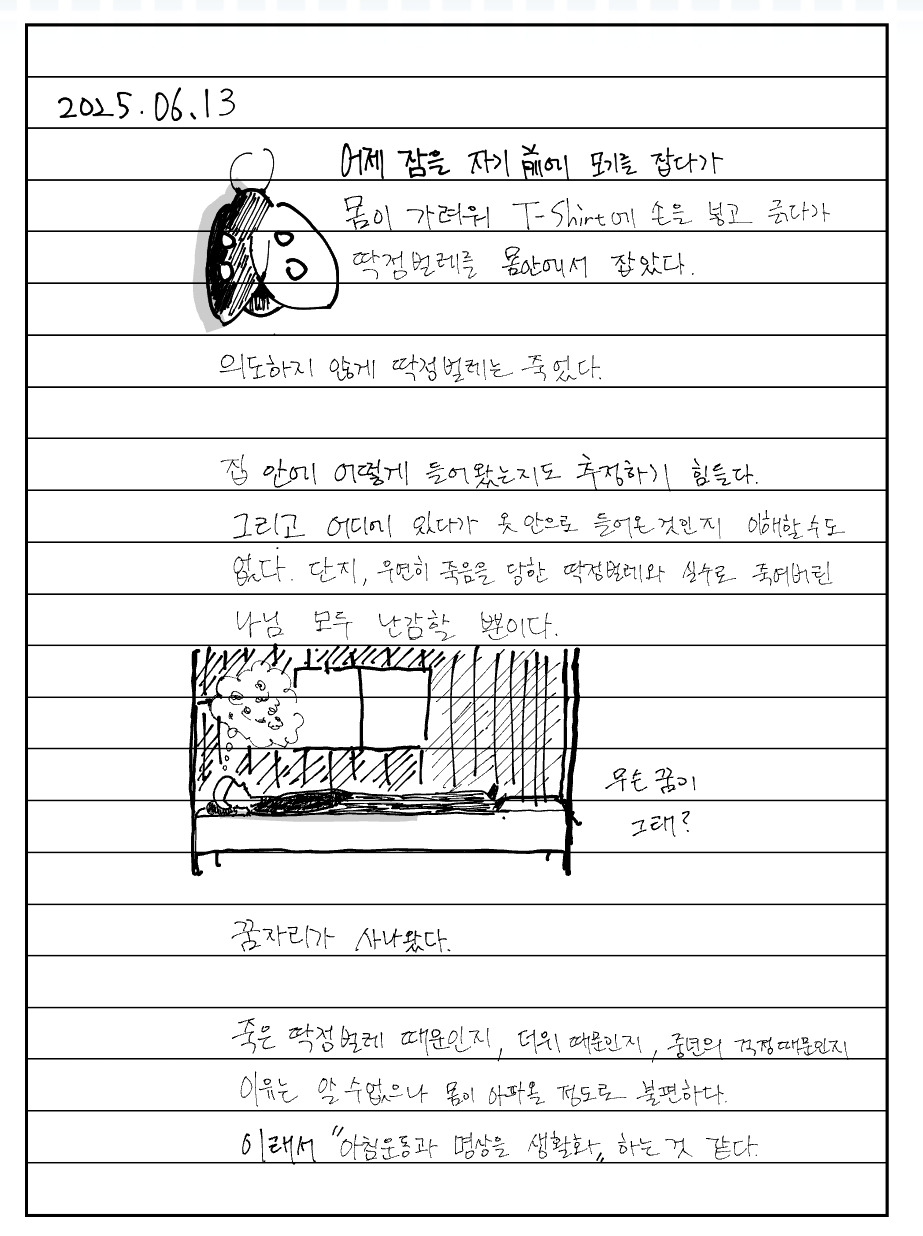 2025.06.13
어제 잠을 자기 前에 모기를 잡다가
몸이 가려워 T-Shirt에 손을 넣고 긁다가
딱정벌레를 몸안에서 잡았다.
의도하지 않게 딱정벌레는 죽었다.
집 안에 어떻게 들어왔는지도 추정하기 힘들다.
그리고 어디에 있다가 옷 안으로 들어온것인지 이해할수도
없다. 단지, 우연히 죽음을 당한 딱정벌레와 실수로 죽여버린
나님 모두 난감할 뿐이다.
무슨 꿈이
그래?
꿈자리가 사나왔다.
죽은 딱정벌레 때문인지, 더위 때문인지, 중년의 걱정때문인지
이유는 알 수없으나 몸이 아파올 정도로 불편하다.
이래서 "아침운동과 명상을 생활화" 하는 것 같다.